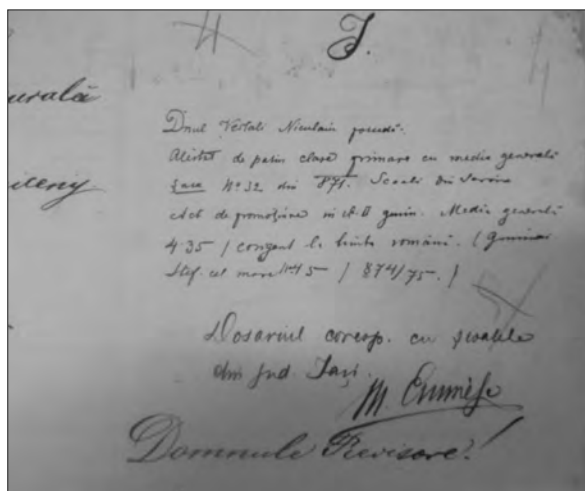 I.
urală
iteniy.
Dnul Vestali Niculaiu posedă:
Atestat de patru clase primare cu media generală
șase No 32 din 871. Scoala din
Act de promoțiune in cl. II gimn. Media generală
4.35 / corigent la limba română. (Gimnasi
Stef. cel mare No 45 / 874/75.)
Dosariul coresp. cu scoalele
din jud. Iași.
M. Eminescu
Domnule Revisore!